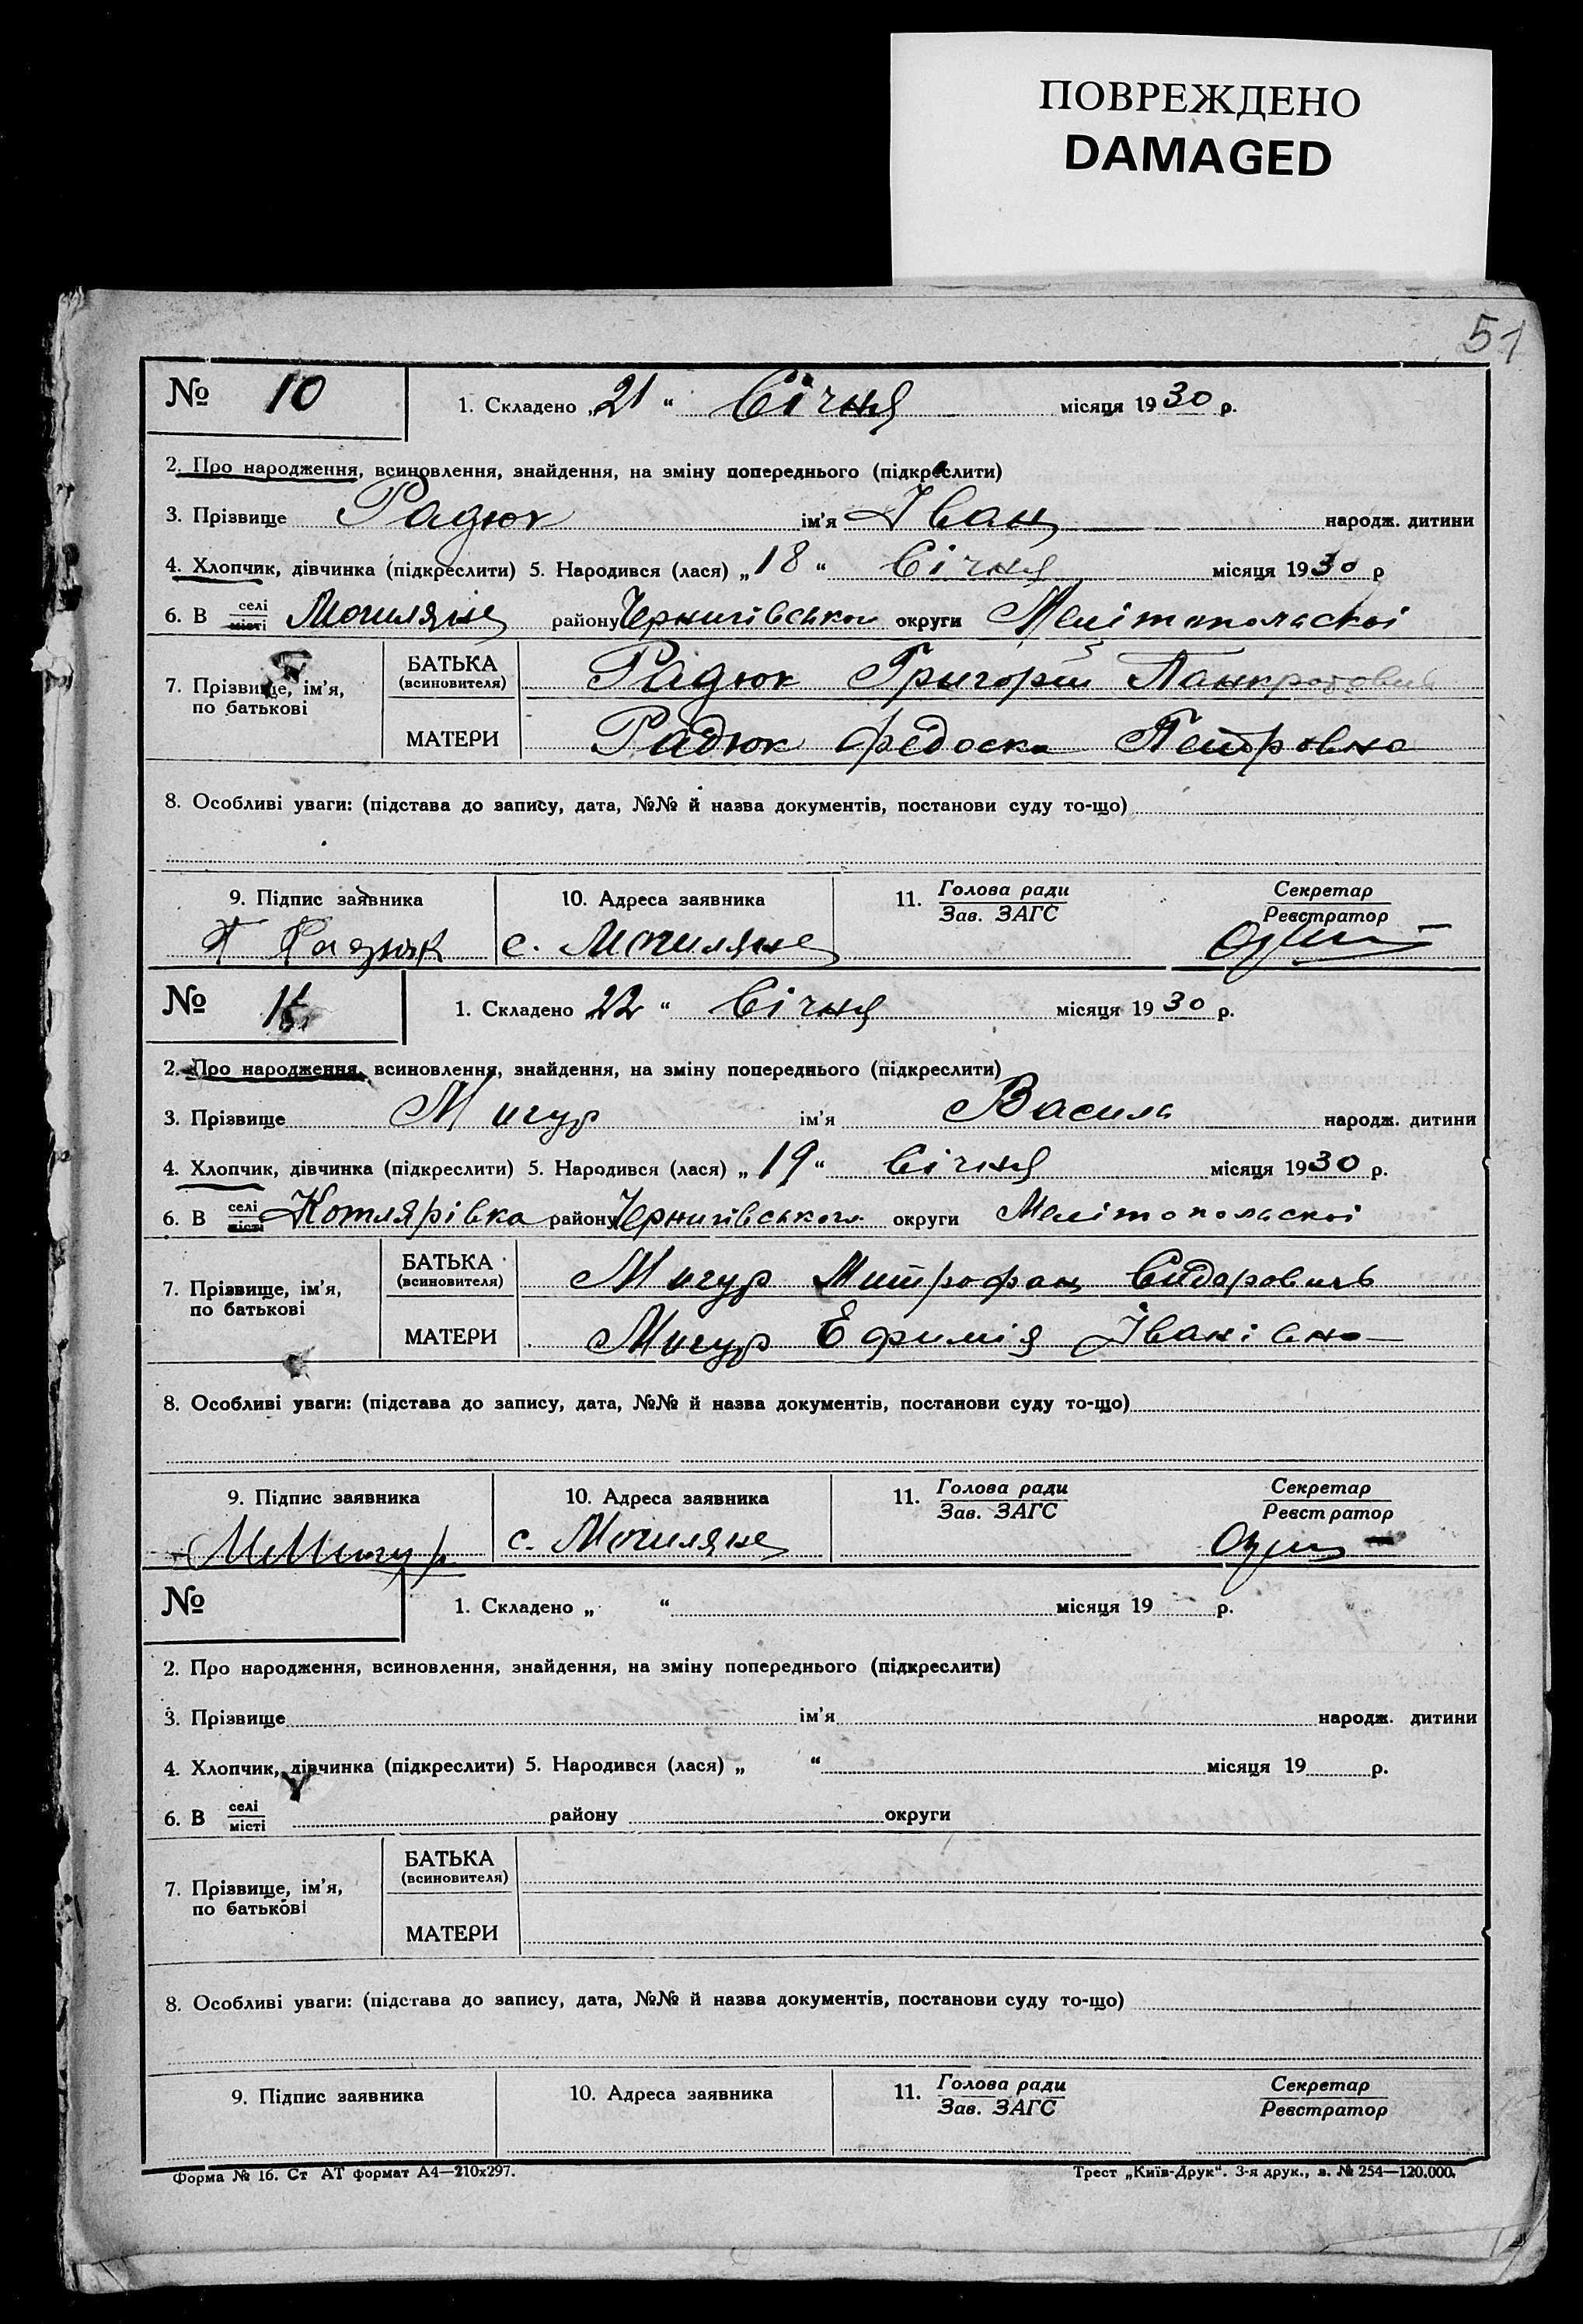 ПОВРЕЖДЕНО
DAMAGED
51
№ 10 1. Складено „21“ Січня місяця 1930 р.
2. Про народження, всиновлення, знайдення, на зміну попереднього (підкреслити)
3. Прізвище Радюк ім'я Іван народж. дитини
4. Хлопчик, дівчинка (підкреслити) 5. Народився (лася) „18“ Січня місяця 1930 р
6. В селі місті Могиляне району Чернигівського округи Мелітопольскої
7. Прізвище, ім'я, по батькові
БАТЬКА (всиновителя) Радюк Григорій Панкратовичь
МАТЕРИ Радюк Федоска Петровна
8. Особливі уваги: (підстава до запису, дата, №№ й назва документів, постанови суду то-що)
9. Підпис заявника 10. Адреса заявника 11. Голова ради Секретар
Зав. ЗАГС Реєстратор
Радюк с. Могиляне
№ 11 1. Складено 22 “ Січня місяця 1930 р.
2. Про народження, всиновлення, знайдення, на зміну попереднього (підкреслити)
3. Прізвище Мигур ім'я Василь народж. дитини
4. Хлопчик, дівчинка (підкреслити) 5. Народився (лася) „19“ Січня місяця 1930 р.
6. В селі місті Котлярівка району Чернигівського округи Мелітопольскої
7. Прізвище, ім'я, по батькові
БАТЬКА (всиновителя) Мигур Митрофан Сидоровичь
МАТЕРИ Мигур Ефимія Іванівна
8. Особливі уваги: (підстава до запису, дата, №№ й назва документів, постанови суду то-що)
9. Підпис заявника 10. Адреса заявника 11. Голова ради Секретар
Зав. ЗАГС Реєстратор
М Мигур с. Могиляне
№ 1. Складено „ “ місяця 19 р.
2. Про народження, всиновлення, знайдення, на зміну попереднього (підкреслити)
3. Прізвище ім'я народж. дитини
4. Хлопчик, дівчинка (підкреслити) 5. Народився (лася) „ “ місяця 19 р.
6. В селі місті району округи
7. Прізвище, ім'я, по батькові
БАТЬКА (всиновителя)
МАТЕРИ
8. Особливі уваги: (підстава до запису, дата, №№ й назва документів, постанови суду то-що)
9. Підпис заявника 10. Адреса заявника 11. Голова ради Секретар
Зав. ЗАГС Реєстратор
Форма № 16. Ст АТ формат А4—210х297. Трест „Київ-Друк“. 3-я друк., з. № 254—120.000.